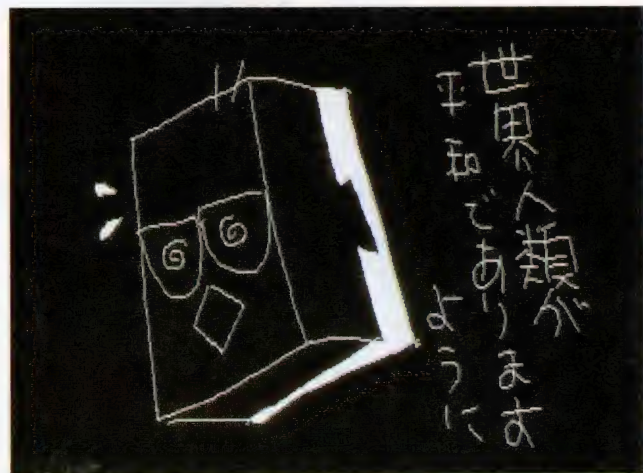 世界人類が
平和であります
ように